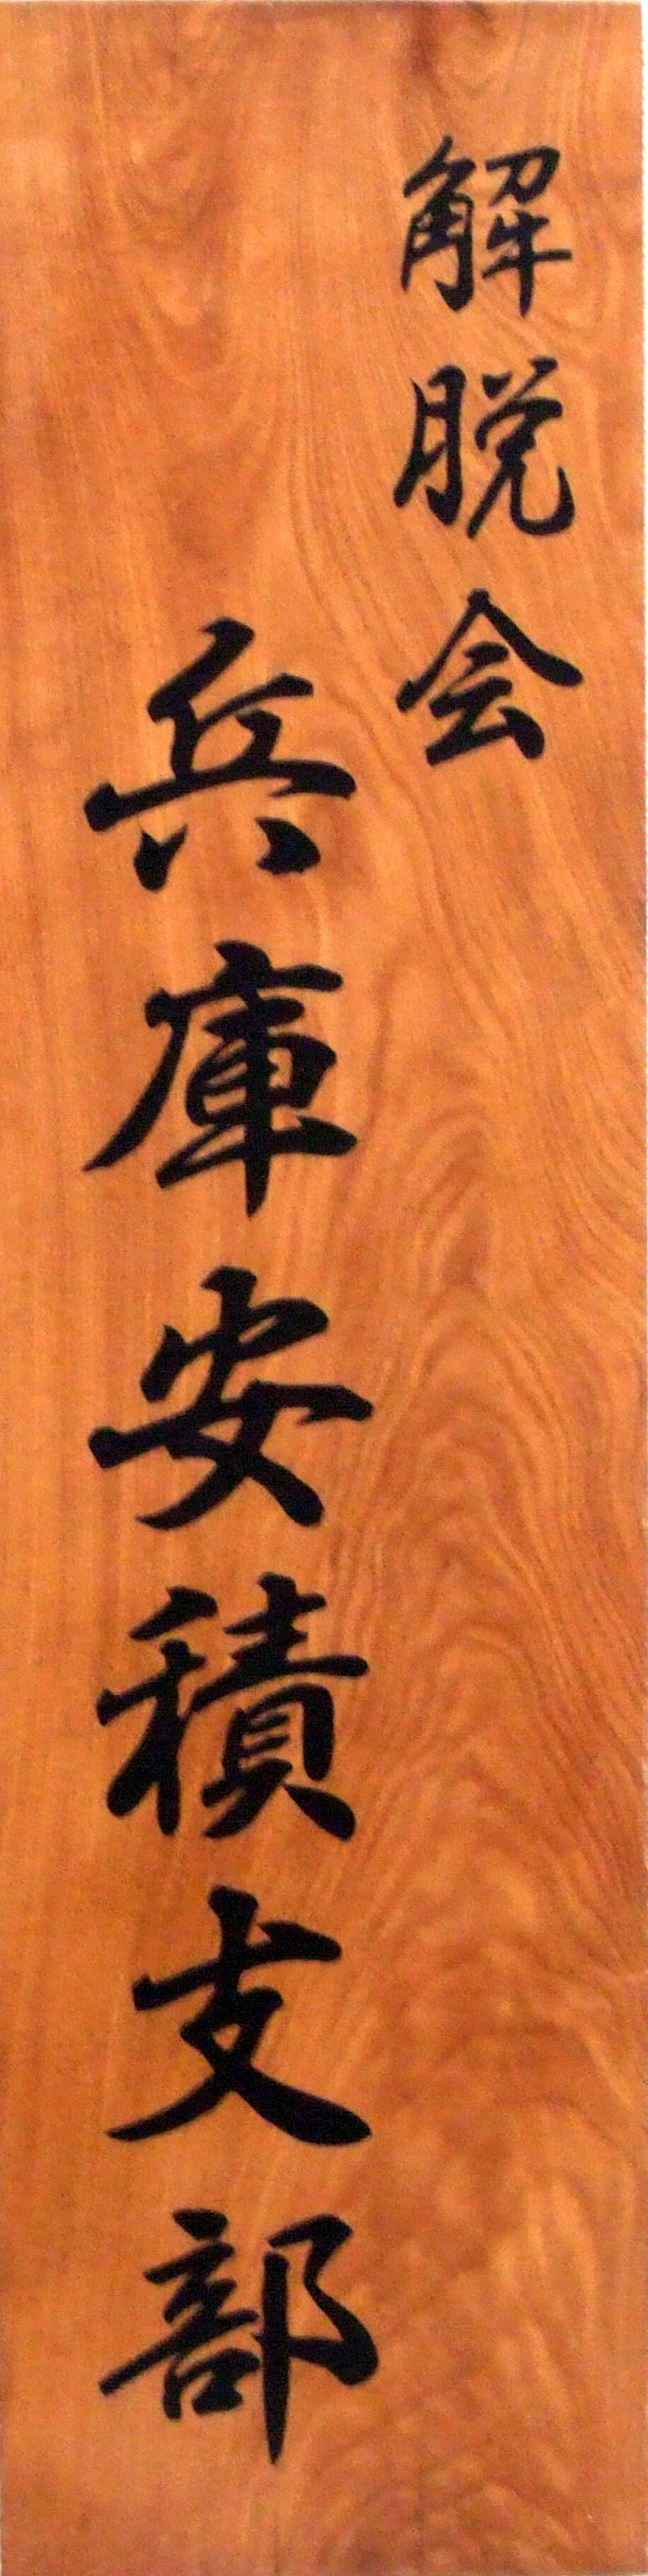 解脱会
兵庫安積支部